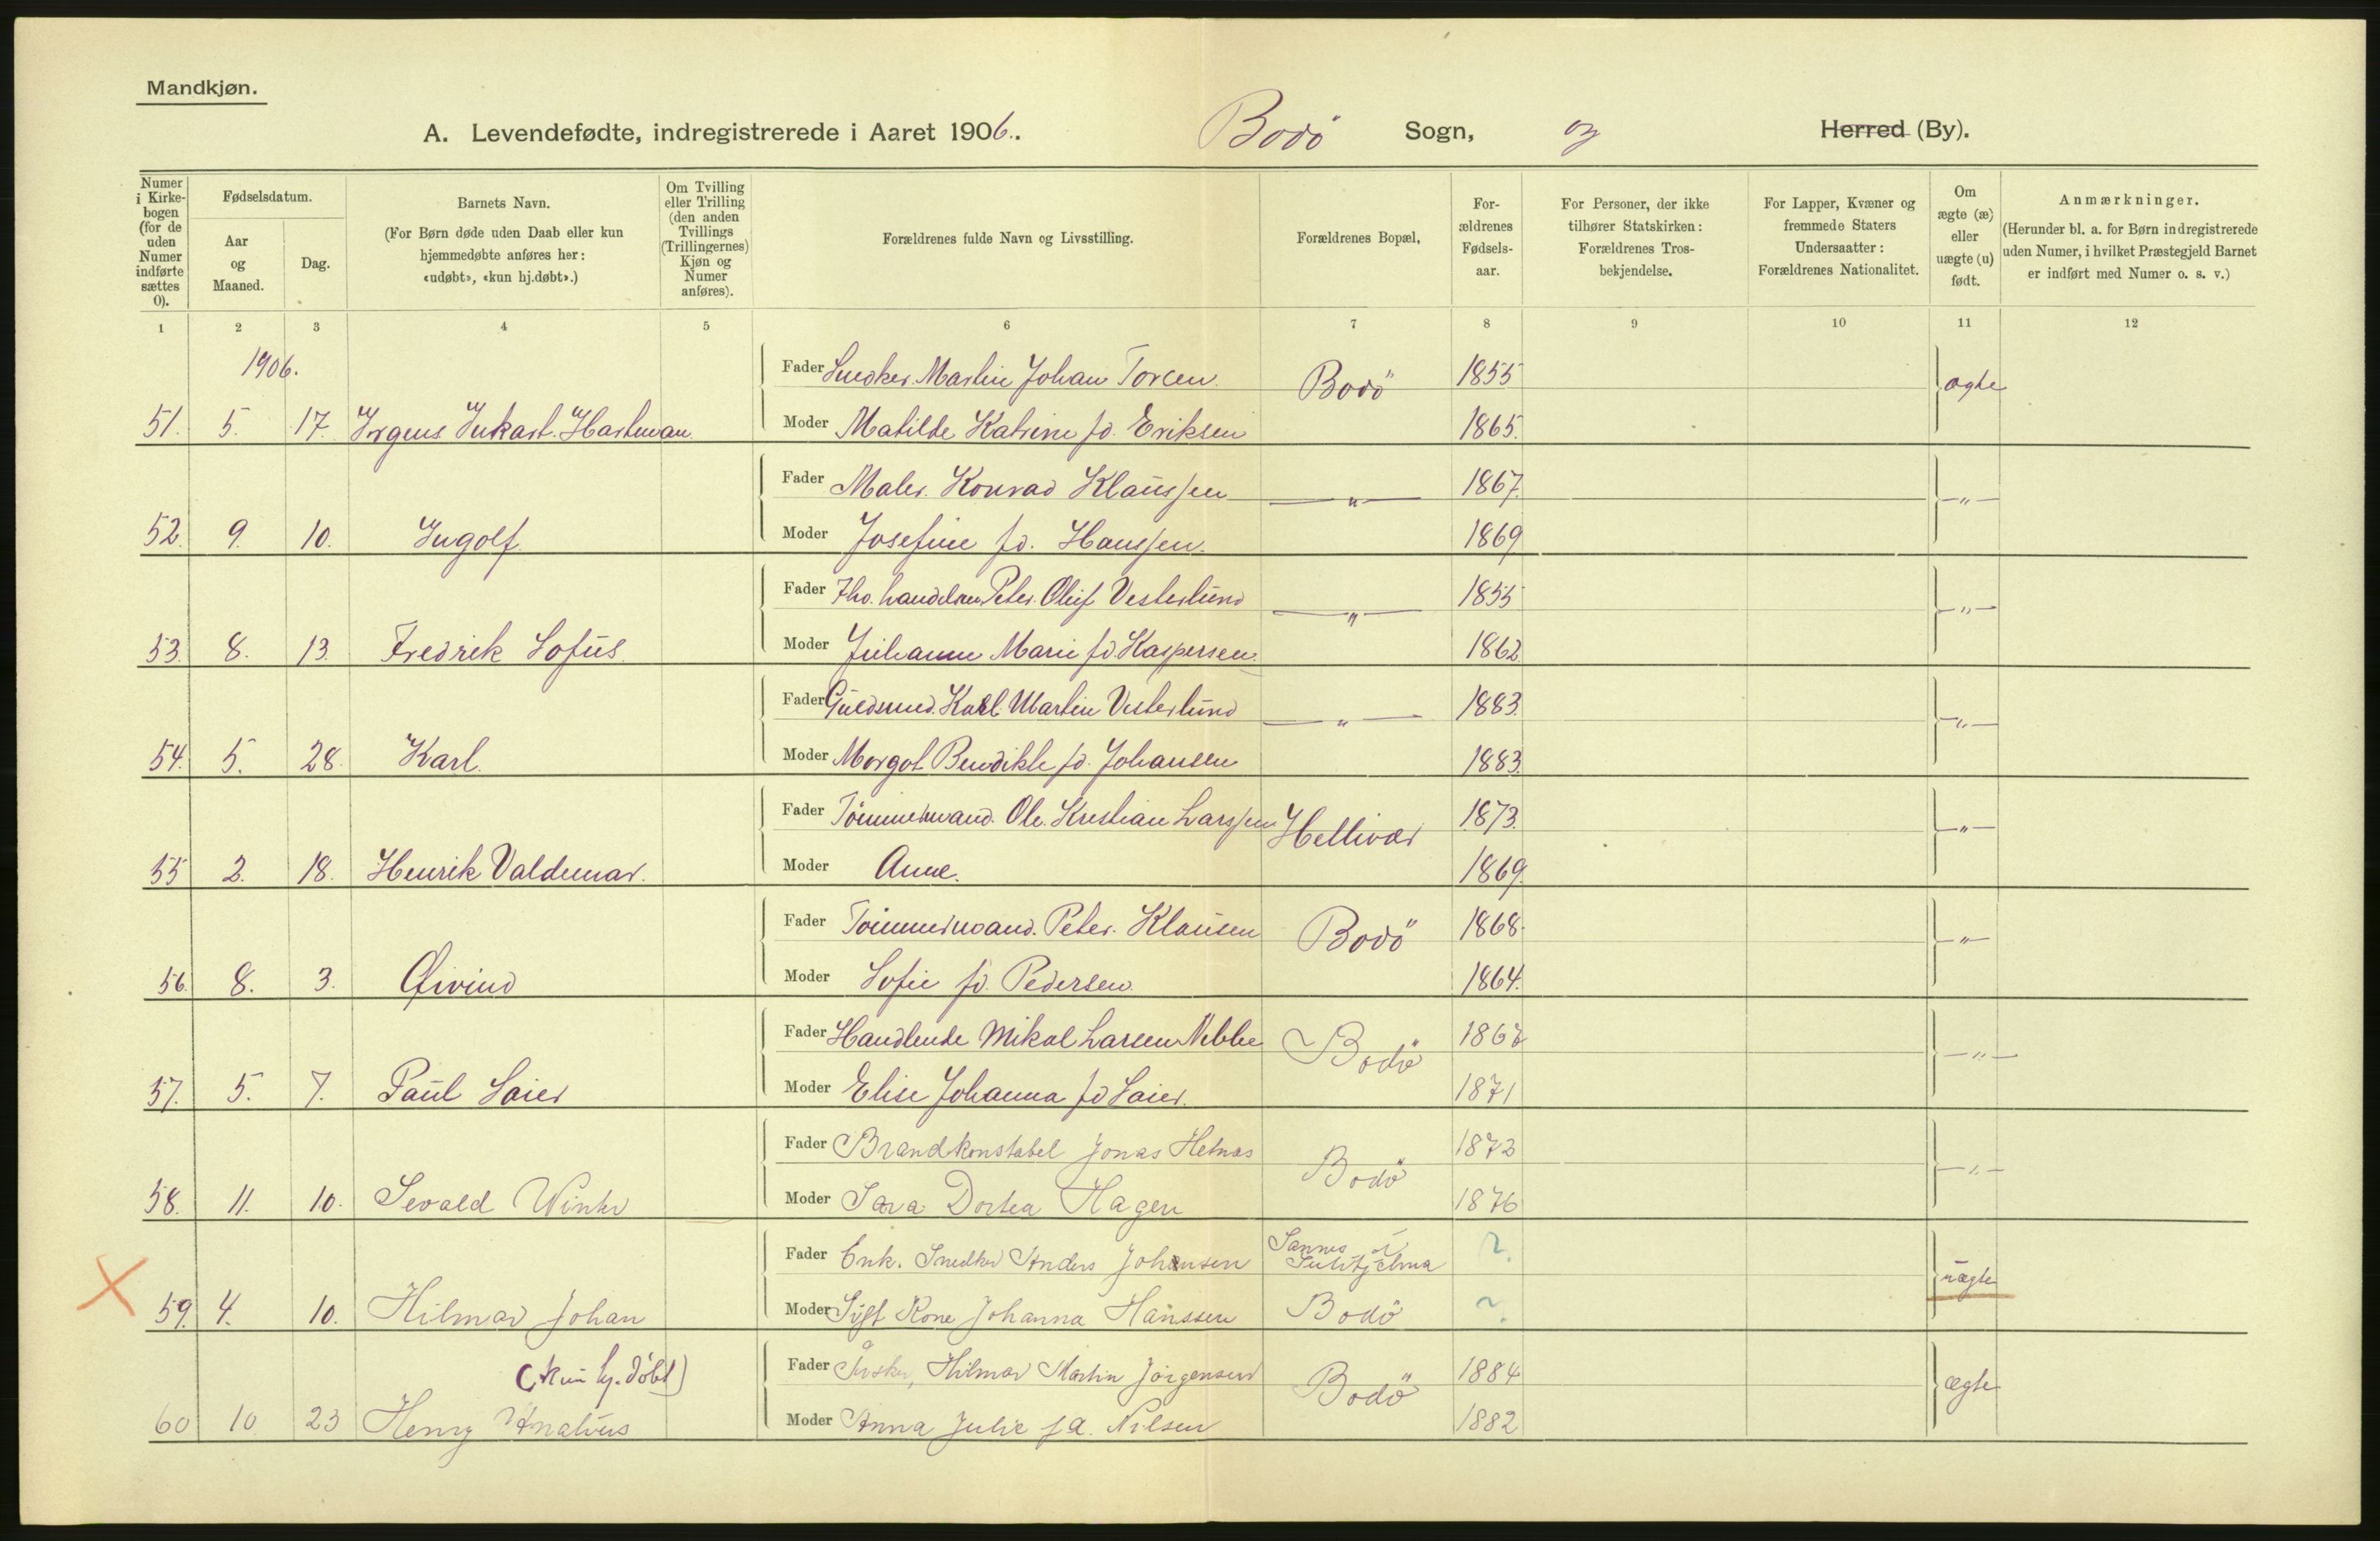 Mandkjøn.
A. Levendefødte, indregistrerede i Aaret 1906.. Bodö Sogn, og Herred (By).
Numer i Kirkebogen (for de uden Numer indførte sættes 0).
Fødselsdatum.
Aar og Maaned.
Dag.
Barnets Navn.
(For Børn døde uden Daab eller kun hjemmedøbte anføres her: «udøbt», «kun hj.døbt».)
Om Tvilling eller Trilling (den anden Tvillings (Trillingernes) Kjøn og Numer anføres).
Forældrenes fulde Navn og Livsstilling.
Forældrenes Bopæl,
Forældrenes Fødselsaar.
For Personer, der ikke tilhører Statskirken: Forældrenes Trosbekjendelse.
For Lapper, Kvæner og fremmede Staters Undersaatter: Forældrenes Nationalitet.
Om ægte (æ) eller uægte (u) født.
Anmærkninger.
(Herunder bl. a. for Børn indregistrerede uden Numer, i hvilket Præstegjeld Barnet er indført med Numer o. s. v.)
1 2 3 4 5 6 7 8 9 10 11 12
1906. Fader Snedker. Martin Johan Torsen. Bodö 1855 ægte
51. 5. 17. Hartman Moder Matilde Katrine fd. Eriksen 1865.
Fader Maler. Konrad Klaussen — " — 1867. — " —
52. 9. 10. Ingolf. Moder Josefine fd. Hanssen. 1869
Fader Peter. Oluf Vesterlund — " — 1855 — " —
53. 8. 13. Fredrik Sofus. Moder Johanne Marie fd. Kaspersen. 1862
Fader Guldsmed. Karl Martin Vesterlund — " — 1883. — " —
54. 5. 28. Karl. Moder Margot Bendikte fd. Johansen 1883.
Fader Tömmermand. Ole. Kristian Larssen Hellivær 1873. — " —
55 2. 18. Henrik Valdemar. Moder Anne. 1869.
Fader Tömmermand. Peter. Klausen Bodö 1868. — " —
56. 8. 3. Øivind Moder Sofie fd. Pedersen. 1864.
Fader Handlende Mikal Larsen Nibbe Bodö — " —
57. 5. 7. Paul Saier Moder Elise Johanna fd Saier. 1871
Fader Brandkonstabel Jonas Hetnes Bodö 1872 — " —
58. 11. 10. Sevald Winter Moder Sara Dortea Hagen 1876
Fader Enk. Snedker Anders Johansen Sannes i Sulitjelma ?. uægte
59. 4. 10. Hilmar Johan Moder Kone Johanna Hanssen Bodö ?.
(kun hj. döbt) Fader Hilmar Martin Jörgensen Bodö 1884 ægte
60 10 23 Henry Moder Anna Julie fd. Nilsen 1882